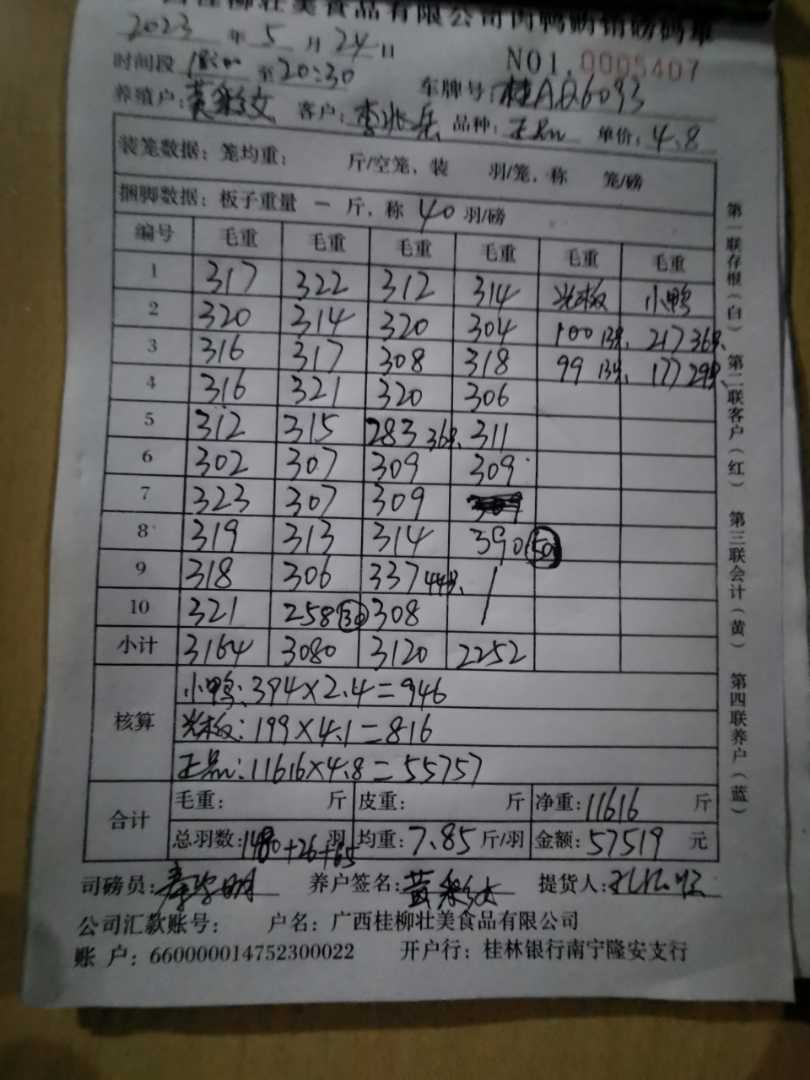 广西桂柳壮美食品有限公司肉鸭磅销磅码单
2023 年 5 月 24 日
NO1.0005407
时间段 至20:30 车牌号:桂AQ6093
养殖户:黄彩文 客户:李兆乐 品种: 单价:4.8
装笼数据:笼均重: 斤/空笼,装 羽/笼,称 笼/磅
捆脚数据:板子重量 一 斤,称 40 羽/磅
编号 毛重 毛重 毛重 毛重 毛重 毛重
1 317 322 312 314 光板 小鸭
2 320 314 320 304 100 13只 217 36只
3 316 317 308 318 99 13只 177 29只
4 316 321 320 306
5 312 315 283 36只 311
6 302 307 309 309
7 323 307 309
8 319 313 314 390 50
9 318 306 337 44只 /
10 321 258 30 308
小计 3164 3080 3120 2252
核算
小鸭:394×2.4=946
光板:199×4.1=816
正品:11616×4.8=55757
合计
毛重: 斤 皮重: 斤 净重:11616 斤
总羽数:1480+26+65 羽 均重:7.85 斤/羽 金额:57519 元
司磅员: 养户签名:黄彩文 提货人:
公司汇款账号: 户名:广西桂柳壮美食品有限公司
账 户:660000014752300022 开户行:桂林银行南宁隆安支行
第一联存根(白) 第二联客户(红) 第三联会计(黄) 第四联养户(蓝)